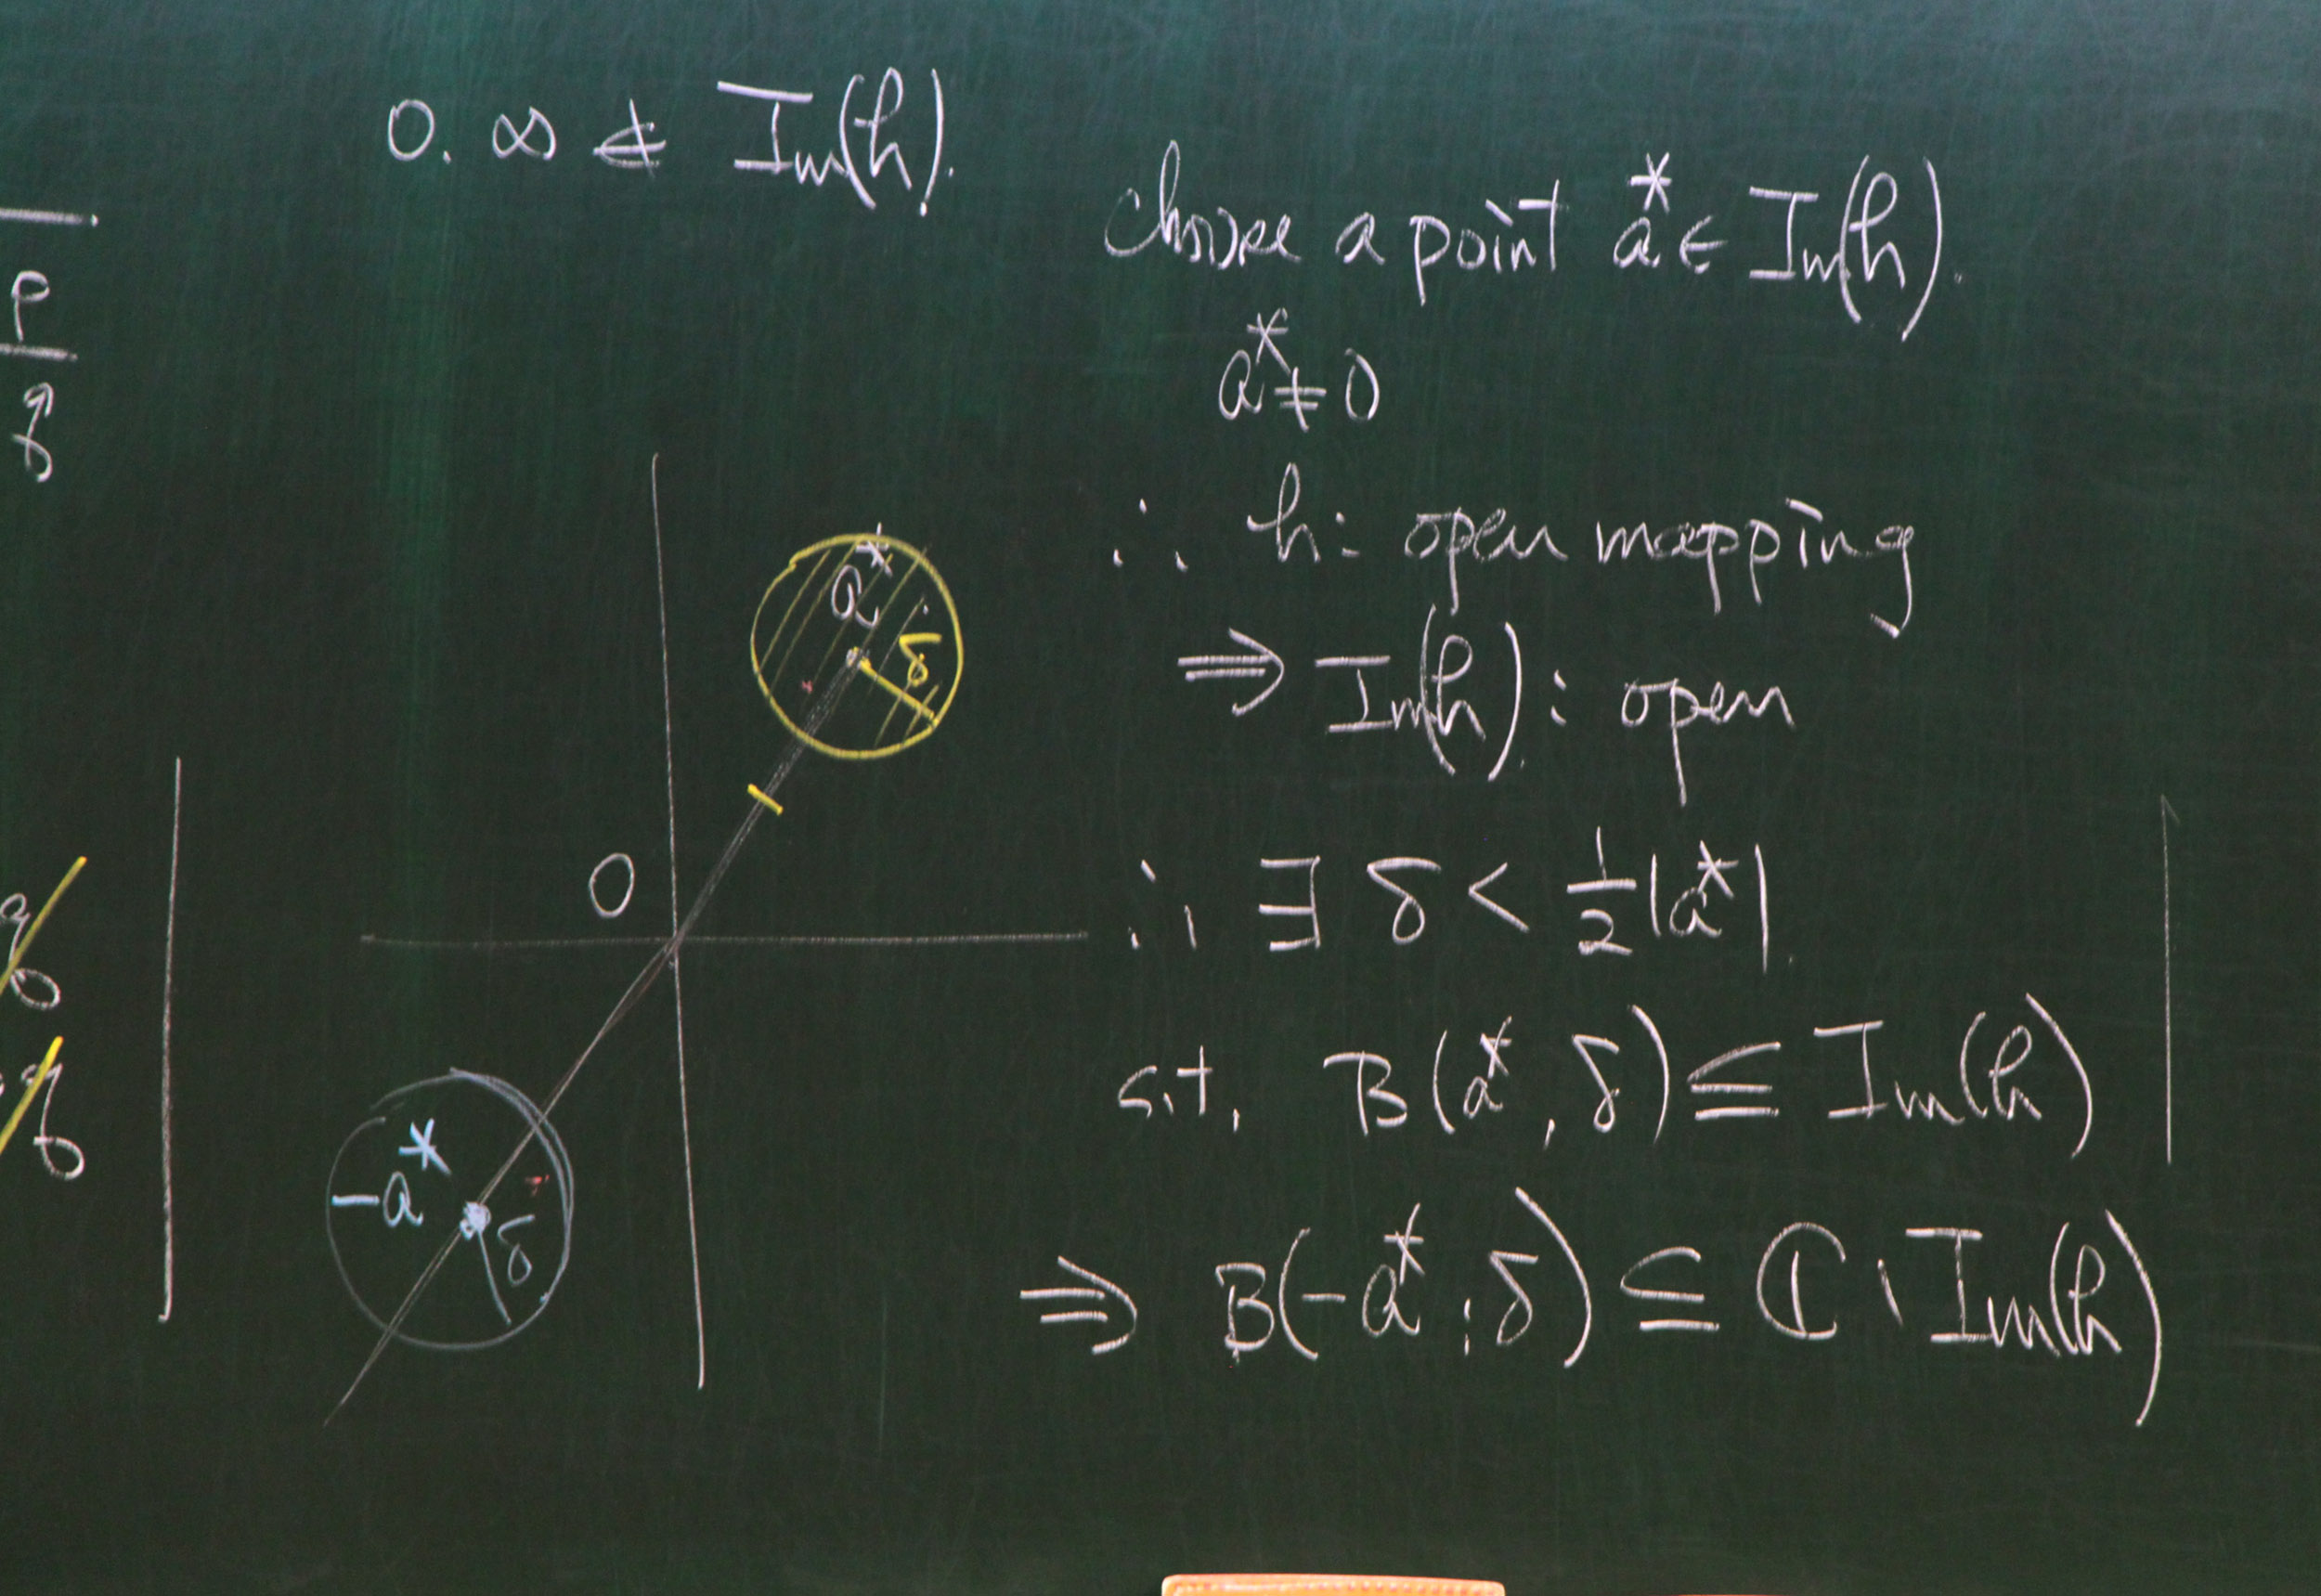 0. ∞ ∉ Im(h).
Choose a point a* ∈ Im(h).
a* ≠ 0
∴ h: open mapping
⇒ Im(h): open
∴ ∃ δ < 1/2 |a*|.
s.t. B(a*, δ) ⊆ Im(h)
⇒ B(-a*; δ) ⊆ ℂ \ Im(h)
a*
δ
0
-a*
δ
P